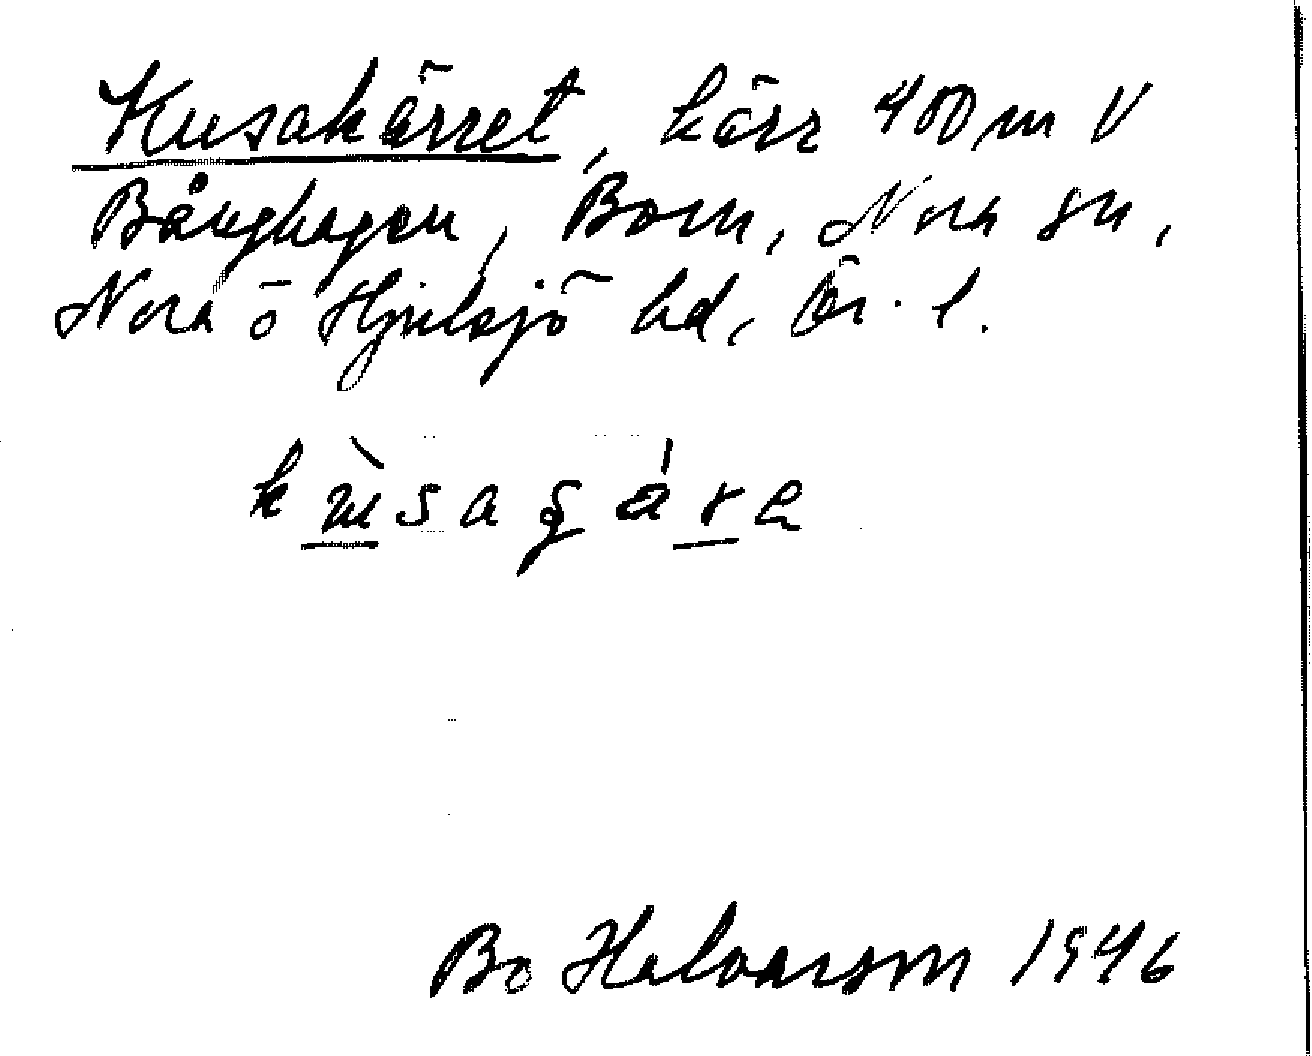 Kusakärret, kärr 400 m V
Bånghagen, Born, Nora sn,
Nora o Hjulsjö hd, Ör. l.
Bo Halvarson 1946